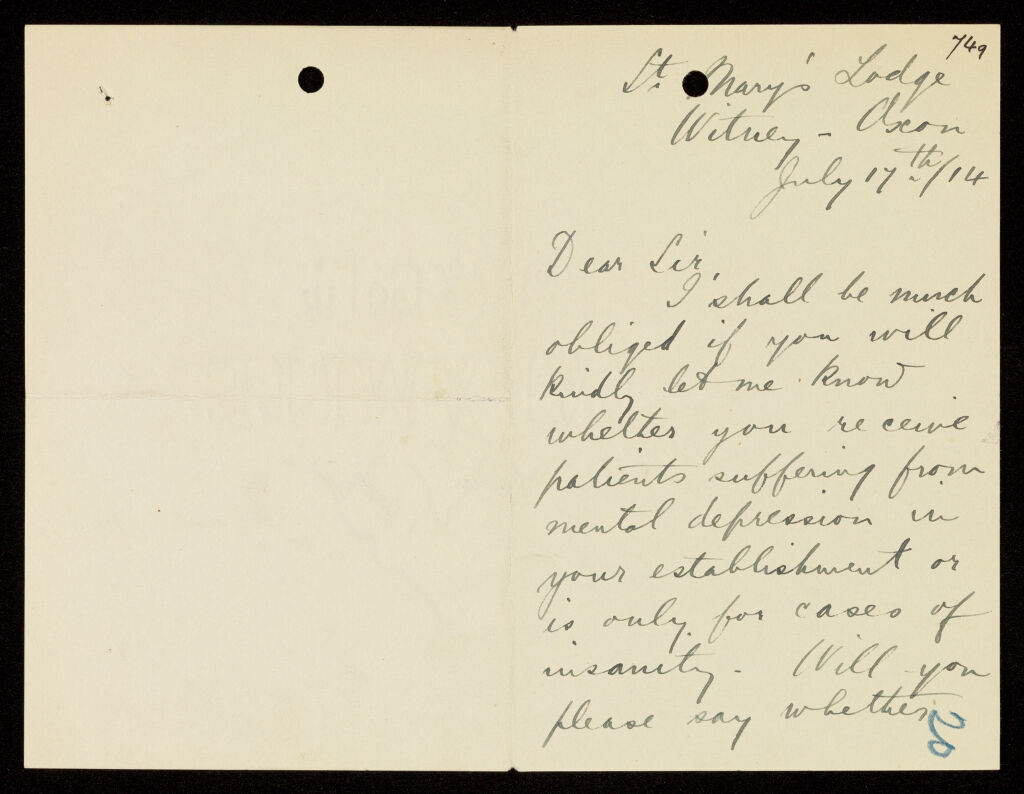 749
St. Mary's Lodge
Witney - Oxon
July 17th/14
Dear Sir,
I shall be much
obliged if you will
kindly let me know
whether you receive
patients suffering from
mental depression in
your establishment or
is only for cases of
insanity. Will you
please say whether
20